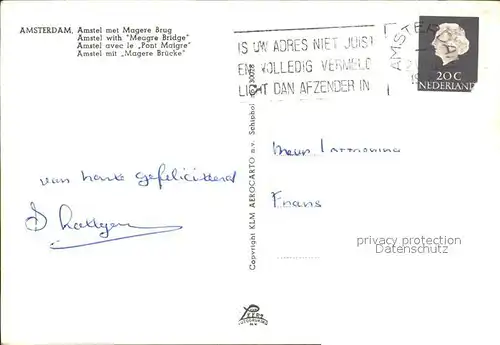 AMSTERDAM, Amstel met Magere Brug
Amstel with "Meagre Bridge"
Amstel avec le „Pont Maigre"
Amstel mit „Magere Brücke"
IS UW ADRES NIET JUIST
EN VOLLEDIG VERMELD
LICHT DAN AFZENDER IN
AMSTERDA
20 C
NEDERLAND
van harte gefeliciteerd
Frans
privacy protection
Datenschutz
Copyright KLM AEROCARTO n.v. Schiphol